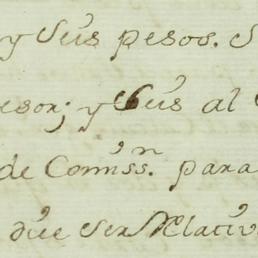 y Sus pesos. S
esor; y Sus al
de Comiss.n para
que ser Relativ